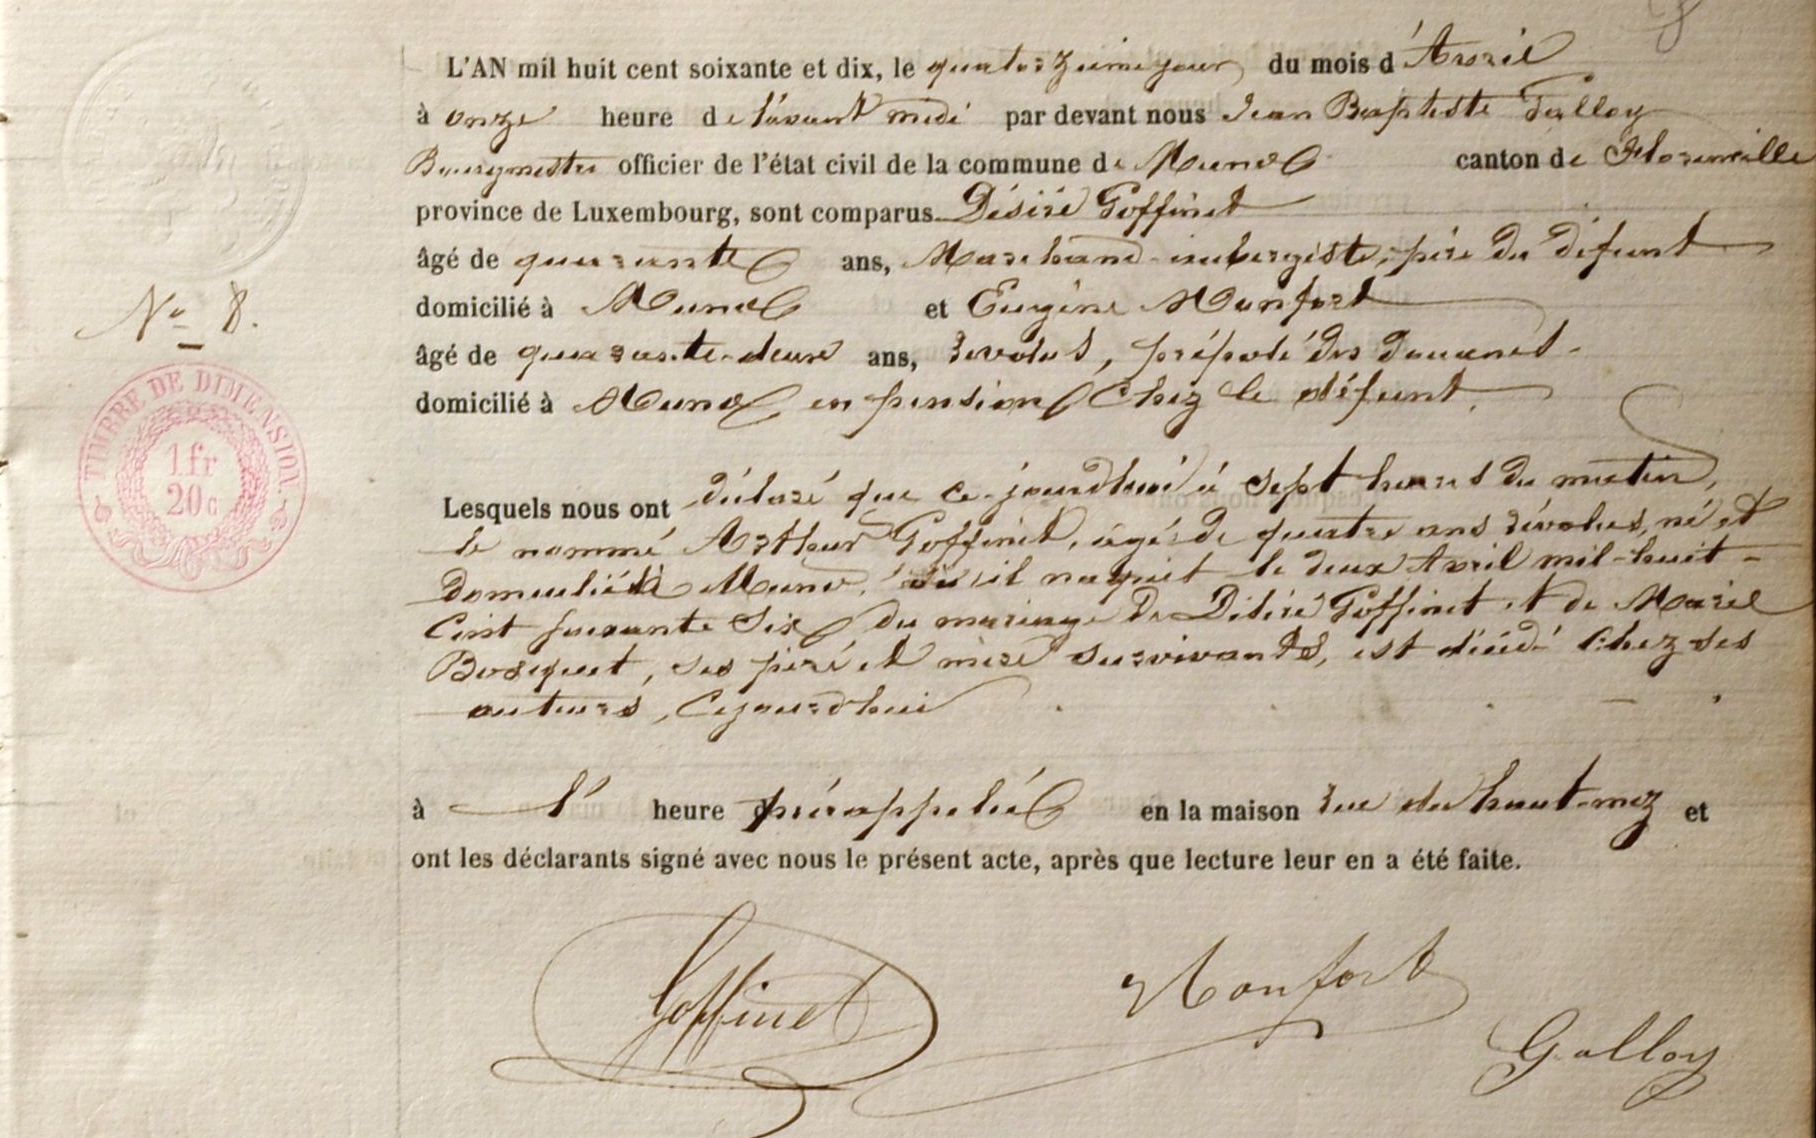 L'AN mil huit cent soixante et dix, le quatorzième jour du mois d'Avril
à onze heure de l'avant midi par devant nous Jean Baptiste Galloy
Bourgmestre officier de l'état civil de la commune de Muno canton de Florenville
province de Luxembourg, sont comparus Désiré Goffinet
âgé de quarante ans, Marchand-aubergiste, père du défunt
domicilié à Muno et Eugène Monfort
N° 8.
âgé de quarante-deux ans, révolus, préposé des douanes
domicilié à Muno, en pension chez le défunt.
TIMBRE DE DIMENSION.
1 fr
20 c
Lesquels nous ont déclaré que ce-jourdhui à sept heures du matin,
le nommé Arthur Goffinet, âgé de quatre ans révolus, né et
domicilié à Muno, où il naquit le deux Avril mil-huit-
cent soixante six, du mariage de Désiré Goffinet et de Marie
Bosquet, ses père et mère survivants, est décédé chez ses
auteurs, cejourd'hui
à l' heure prérappelée en la maison rue du haut-mez et
ont les déclarants signé avec nous le présent acte, après que lecture leur en a été faite.
Goffinet
Monfort
Galloy